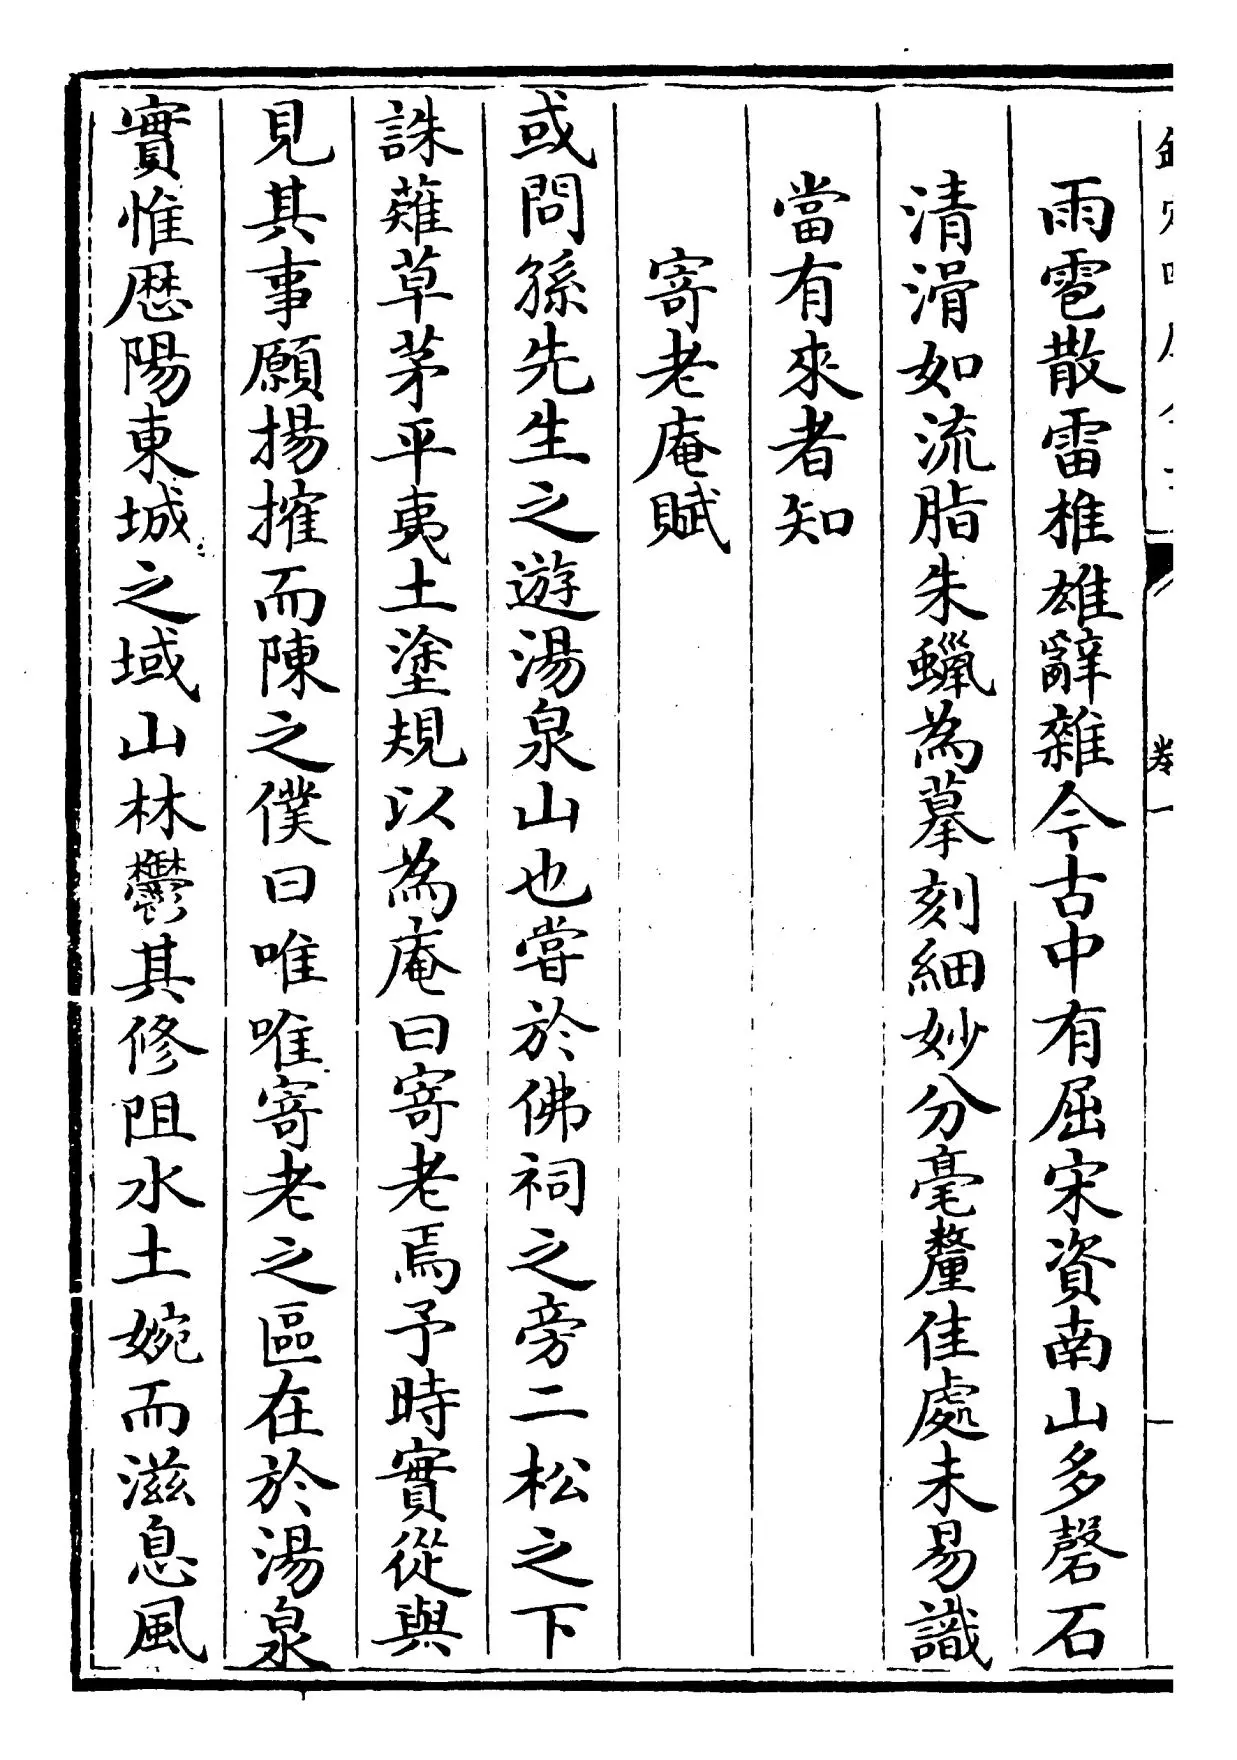 卷一
雨雹散雷椎雄辭雜今古中有屈宋資南山多磬石
清滑如流脂朱蠟為摹刻細妙分毫釐佳處未易識
當有來者知
寄老庵賦
或問孫先生之遊湯泉山也嘗於佛祠之旁二松之下
誅薙草茅平夷土塗規以為庵曰寄老焉予時實從與
見其事願揚搉而陳之僕曰唯唯寄老之區在於湯泉
實惟歴陽東城之域山林鬱其修阻水土婉而滋息風